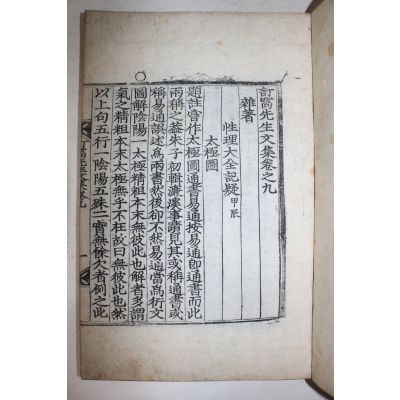 訂窩先生文集卷之九
雜著
性理大全記疑 甲辰
太極圖
題註嘗作太極圖通書易通按易通卽通書而此
兩稱之盖朱子初輯濂溪事蹟見其或稱通書或
稱易通誤述爲兩書然後卻不然易通當爲衍文
圖解陰陽一太極精粗本末無彼此也解者多謂
氣之精粗本末太極無乎不在故曰無彼此也然
以上句五行一陰陽五殊二實無餘欠者例之此